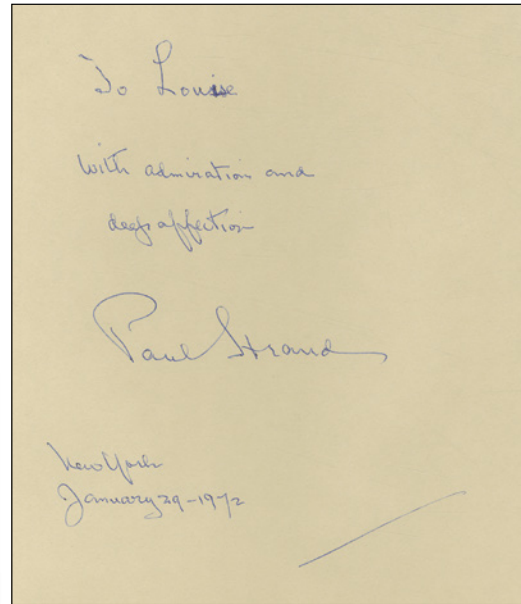 To Louise
with admiration and
deep affection
Paul Strand
New York
January 29-1972